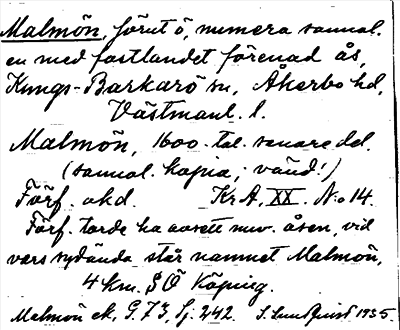 Malmön, förut ö, numera sannol.
en med fastlandet förenad ås,
Kungs-Barkarö sn, Åkerbo hd,
Västmanl. l.
Malmön, 1600-tal. senare del.
(sannol. kopia; vänd!)
Förf. okd. Kr A, XX. No 14.
Förf. torde ha avsett nuv. åsen, vid
vars sydända står namnet Malmön,
4 km. S Ö Köping.
Malmön ek, G. 73, Sj. 242. S. 1935.